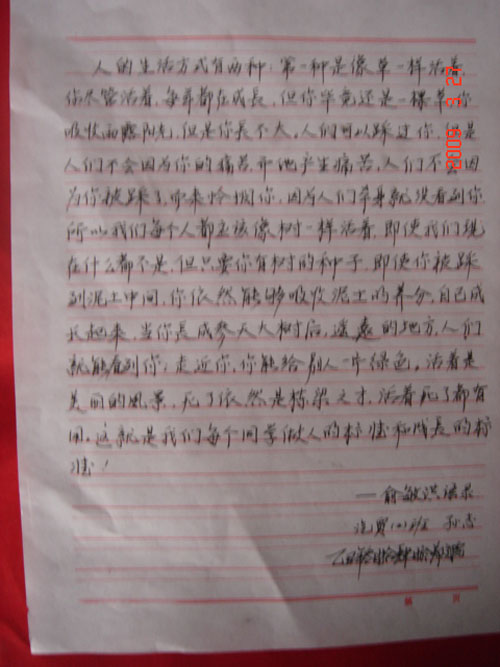 人的生活方式有两种：第一种是像草一样活着
你尽管活着，每年都在成长，但你毕竟还是一棵草你
吸收雨露阳光，但是你长不大，人们可以踩过你，但是
人们不会因为你的痛苦而他产生痛苦，人们不会因
为你被踩了，而来怜悯你，因为人们本身就没看到你
所以我们每个人都应该像树一样活着，即使我们现
在什么都不是，但只要你有树的种子，即使你被踩
到泥土中间，你依然能够吸收泥土的养分，自己成
长起来，当你长成参天大树后，遥远的地方，人们
就能看到你；走近你，你能给别人一片绿色。活着是
美丽的风景，死了依然是栋梁之才，活着死了都有
用。这就是我们每个同学做人的标准和成长的标
准！
——俞敏洪语录
2009 3.27